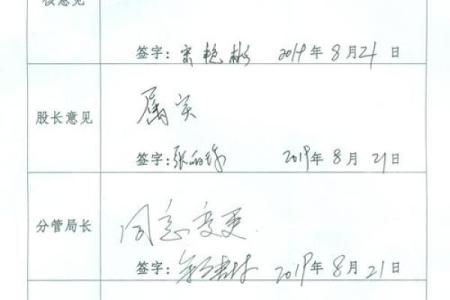 核意见
签字:宋艳彬 2019年8月21日
股长意见
属实
签字:张 2019年8月21日
分管局长
同意变更
签字: 2019年8月21日